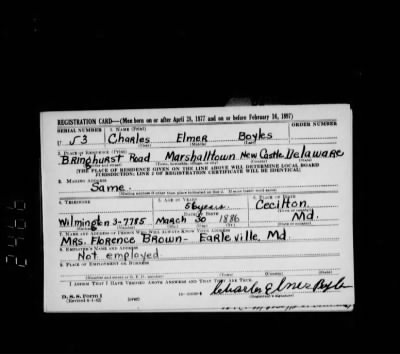 REGISTRATION CARD—(Men born on or after April 28, 1877 and on or before February 16, 1897)
SERIAL NUMBER 1. NAME (Print) ORDER NUMBER
U 53 Charles Elmer Boyles
(First) (Middle) (Last)
2. PLACE OF RESIDENCE (Print)
Bringhurst Road Marshalltown New Castle Delaware
[THE PLACE OF RESIDENCE GIVEN ON THE LINE ABOVE WILL DETERMINE LOCAL BOARD
JURISDICTION; LINE 2 OF REGISTRATION CERTIFICATE WILL BE IDENTICAL]
3. MAILING ADDRESS
Same.
4. TELEPHONE 5. AGE IN YEARS 6. PLACE OF BIRTH
56 years. Cecilton.
DATE OF BIRTH
Wilmington 3-7785 March 30 1886 Md.
7. NAME AND ADDRESS OF PERSON WHO WILL ALWAYS KNOW YOUR ADDRESS
Mrs. Florence Brown - Earleville, Md.
8. EMPLOYER'S NAME AND ADDRESS
Not employed
9. PLACE OF EMPLOYMENT OR BUSINESS
I AFFIRM THAT I HAVE VERIFIED ABOVE ANSWERS AND THAT THEY ARE TRUE.
D. S. S. Form 1 Charles Elmer Boyles
(over) (Registrant's signature)
2466